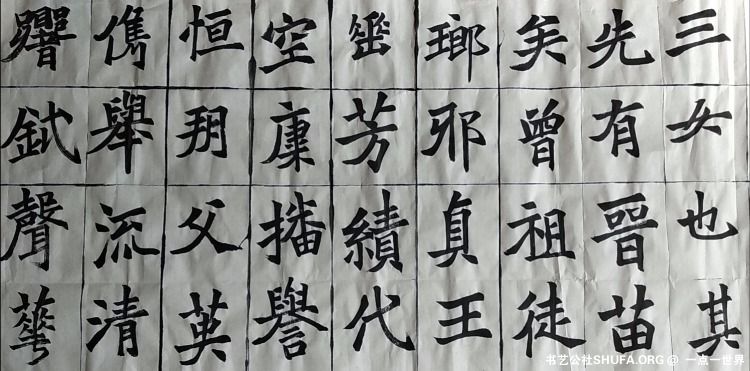 三女也其
先有晉苗
矣曾祖徒
瑯邪貞王
垂芳績代
空康播譽
恒朔父英
儁舉流清
鉽聲華
书艺公社SHUFA.ORG @ 一点一世界